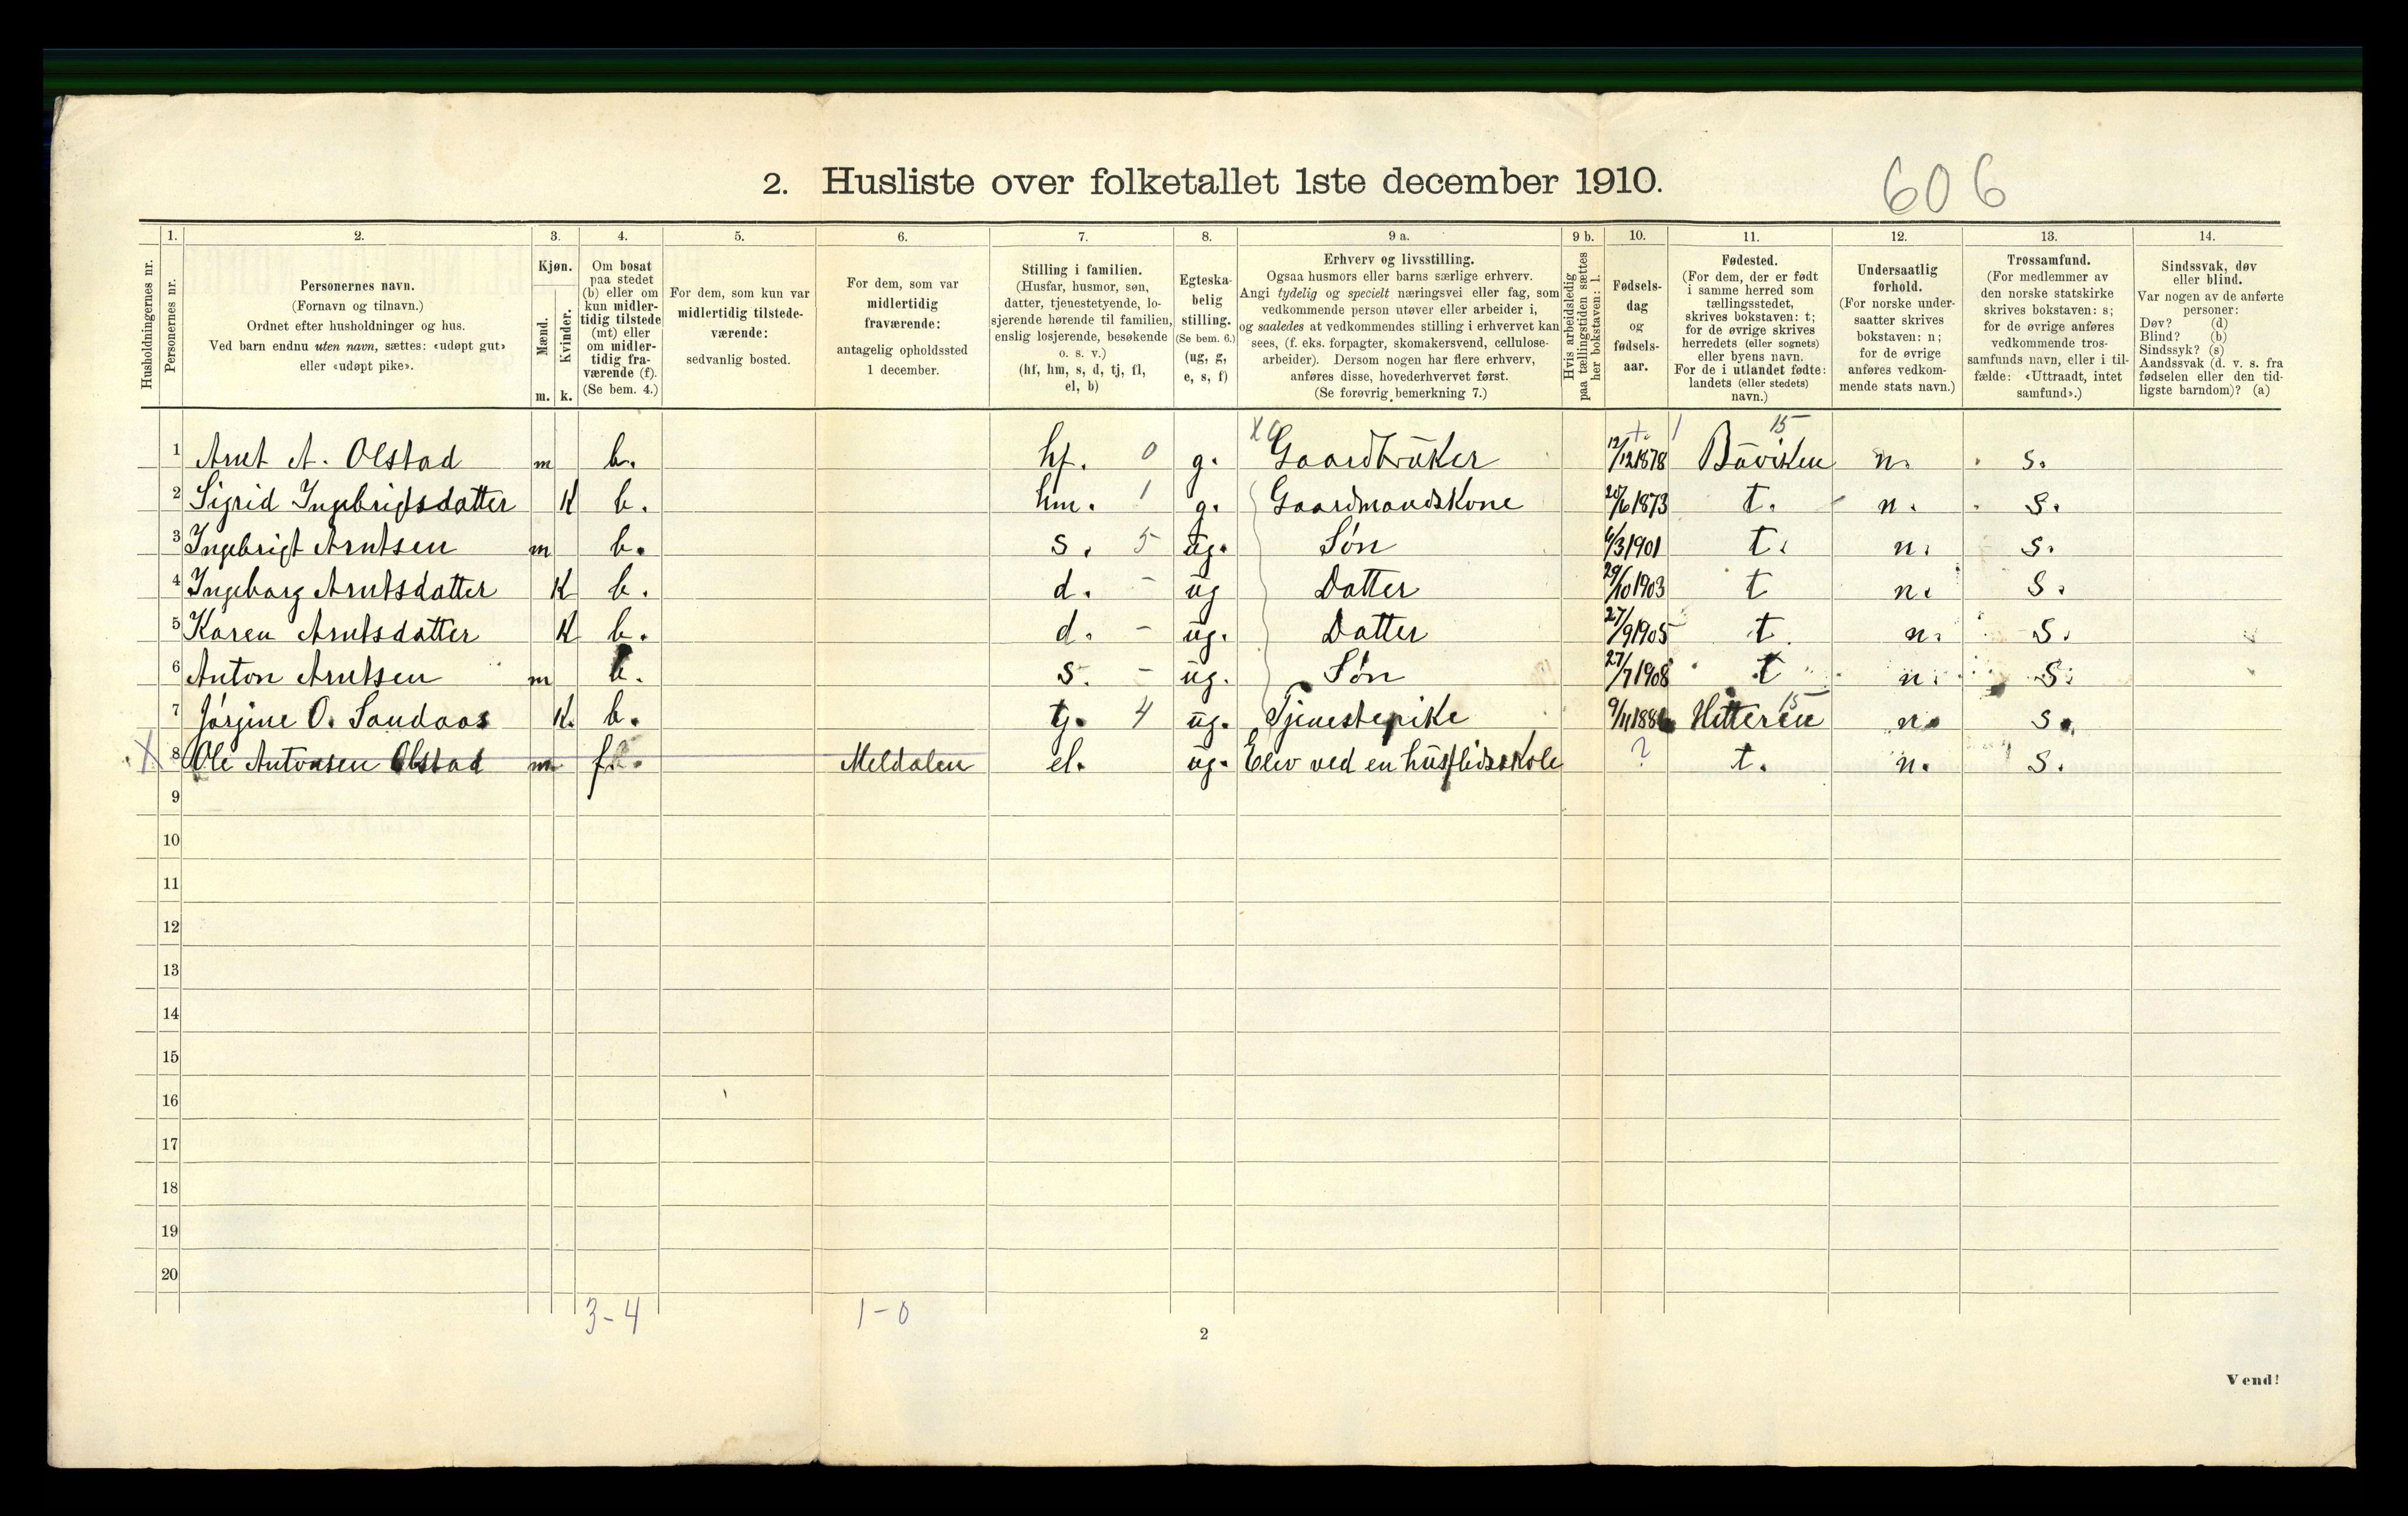 2. Husliste over folketallet 1ste december 1910.
606
1. 2. 3. 4. 5. 6. 7. 8. 9 a. 9 b. 10. 11. 12. 13. 14.
Husholdningernes nr.
Personernes nr.
Personernes navn.
(Fornavn og tilnavn.)
Ordnet efter husholdninger og hus.
Ved barn endnu uten navn, sættes: «udøpt gut»
eller «udøpt pike».
Kjøn.
Mænd.
Kvinder.
m. k.
Om bosat
paa stedet
(b) eller om
kun midler-
tidig tilstede
(mt) eller
om midler-
tidig fra-
værende (f).
(Se bem. 4.)
For dem, som kun var
midlertidig tilstede-
værende:
sedvanlig bosted.
For dem, som var
midlertidig
fraværende:
antagelig opholdssted
1 december.
Stilling i familien.
(Husfar, husmor, søn,
datter, tjenestetyende, lo-
sjerende hørende til familien,
enslig losjerende, besøkende
o. s. v.)
(hf, hm, s, d, tj, fl,
el, b)
Egteska-
belig
stilling.
(Se bem. 6.)
(ug, g,
e, s, f)
Erhverv og livsstilling.
Ogsaa husmors eller barns særlige erhverv.
Angi tydelig og specielt næringsvei eller fag, som
vedkommende person utøver eller arbeider i,
og saaledes at vedkommendes stilling i erhvervet kan
sees, (f. eks. forpagter, skomakersvend, cellulose-
arbeider). Dersom nogen har flere erhverv,
anføres disse, hovederhvervet først.
(Se forøvrig bemerkning 7.)
Hvis arbeidsledig
paa tællingstiden sættes
her bokstaven: l.
Fødsels-
dag
og
fødsels-
aar.
Fødested.
(For dem, der er født
i samme herred som
tællingsstedet,
skrives bokstaven: t;
for de øvrige skrives
herredets (eller sognets)
eller byens navn.
For de i utlandet fødte:
landets (eller stedets)
navn.)
Undersaatlig
forhold.
(For norske under-
saatter skrives
bokstaven: n;
for de øvrige
anføres vedkom-
mende stats navn.)
Trossamfund.
(For medlemmer av
den norske statskirke
skrives bokstaven: s;
for de øvrige anføres
vedkommende tros-
samfunds navn, eller i til-
fælde: «Uttraadt, intet
samfund».)
Sindssvak, døv
eller blind.
Var nogen av de anførte
personer:
Døv? (d)
Blind? (b)
Sindssyk? (s)
Aandssvak (d. v. s. fra
fødselen eller den tid-
ligste barndom)? (a)
15
1 Arnt A. Olstad m b. hf. 0 g. Gaardbruker 12/12 1878 Buviken n. s.
2 Sigrid Ingebrigtsdatter K b. hm. 1 g. Gaardmandskone 20/6 1873 t. n. s.
3 Ingebrigt Arntsen m b. s. 5 ug. Søn 6/3 1901 t. n. s.
4 Ingeborg Arntsdatter K b. d. - ug Datter 29/10 1903 t n. s.
5 Karen Arntsdatter K b. d. - ug. Datter 27/9 1905 t n. s.
6 Anton Arntsen m b. s. - ug. Søn 27/7 1908 t n. s.
15
7 Jørgine O. Sandaas K. b. tj. 4 ug. Tjenestepike 9/11 188 Hitteren n. s.
X 8 Ole Antonsen Olstad m f. Meldalen el. ug. Elev ved en husflidsskole ? t. n. s.
9
10
11
12
13
14
15
16
17
18
19
20
3-4 1-0
2
Vend!